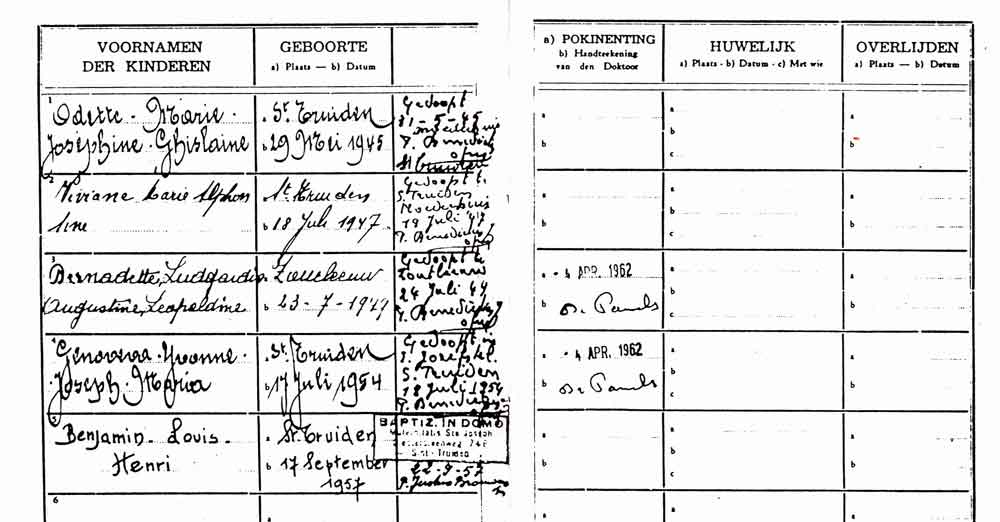 VOORNAMEN
DER KINDEREN
GEBOORTE
a) Plaats — b) Datum
B) POKINENTING
b) Handteekening
van den Doktoor
HUWELIJK
a) Plaats - b) Datum - c) Met wie
OVERLIJDEN
a) Plaats — b) Datum
1
Odette - Marie -
Joséphine - Ghislaine
a St. Truiden
b 29 Mei 1945
Gedoopt
31-5-45
P. Benedict
ofm
a
b
a
b
c
a
b
2
Viviane Marie Alphon
sine
a St. Truiden
b 18 Juli 1947
Gedoopt te
S. Truiden
Moederhuis
19 Juli 47
P. Benedictus
ofm
a
b
a
b
c
a
b
3
Bernadette, Ludgardis
Augustine, Leopoldine
a Zoutleeuw
b 23-7-1949
Gedoopt te
Zoutleeuw
24 Juli 49
P. Benedictus
ofm
a - 4 APR. 1962
b Dr Pauls
a
b
c
a
b
4
Genoveva - Yvonne -
Joseph - Maria
a St. Truiden
b 17 Juli 1954
Gedoopt in
S. Jozefskl.
S. Truiden
18 Juli 1954
P. Benedictus
ofm
a - 4 APR. 1962
b Dr Pauls
a
b
c
a
b
5
Benjamin - Louis -
Henri
a St. Truiden
b 17 September
1957
BAPTIZ. IN DOMO
Maternitatis Ste Joseph
Sint-Truiden
22-9-57
a
b
a
b
c
a
b
6
a
a
a
a